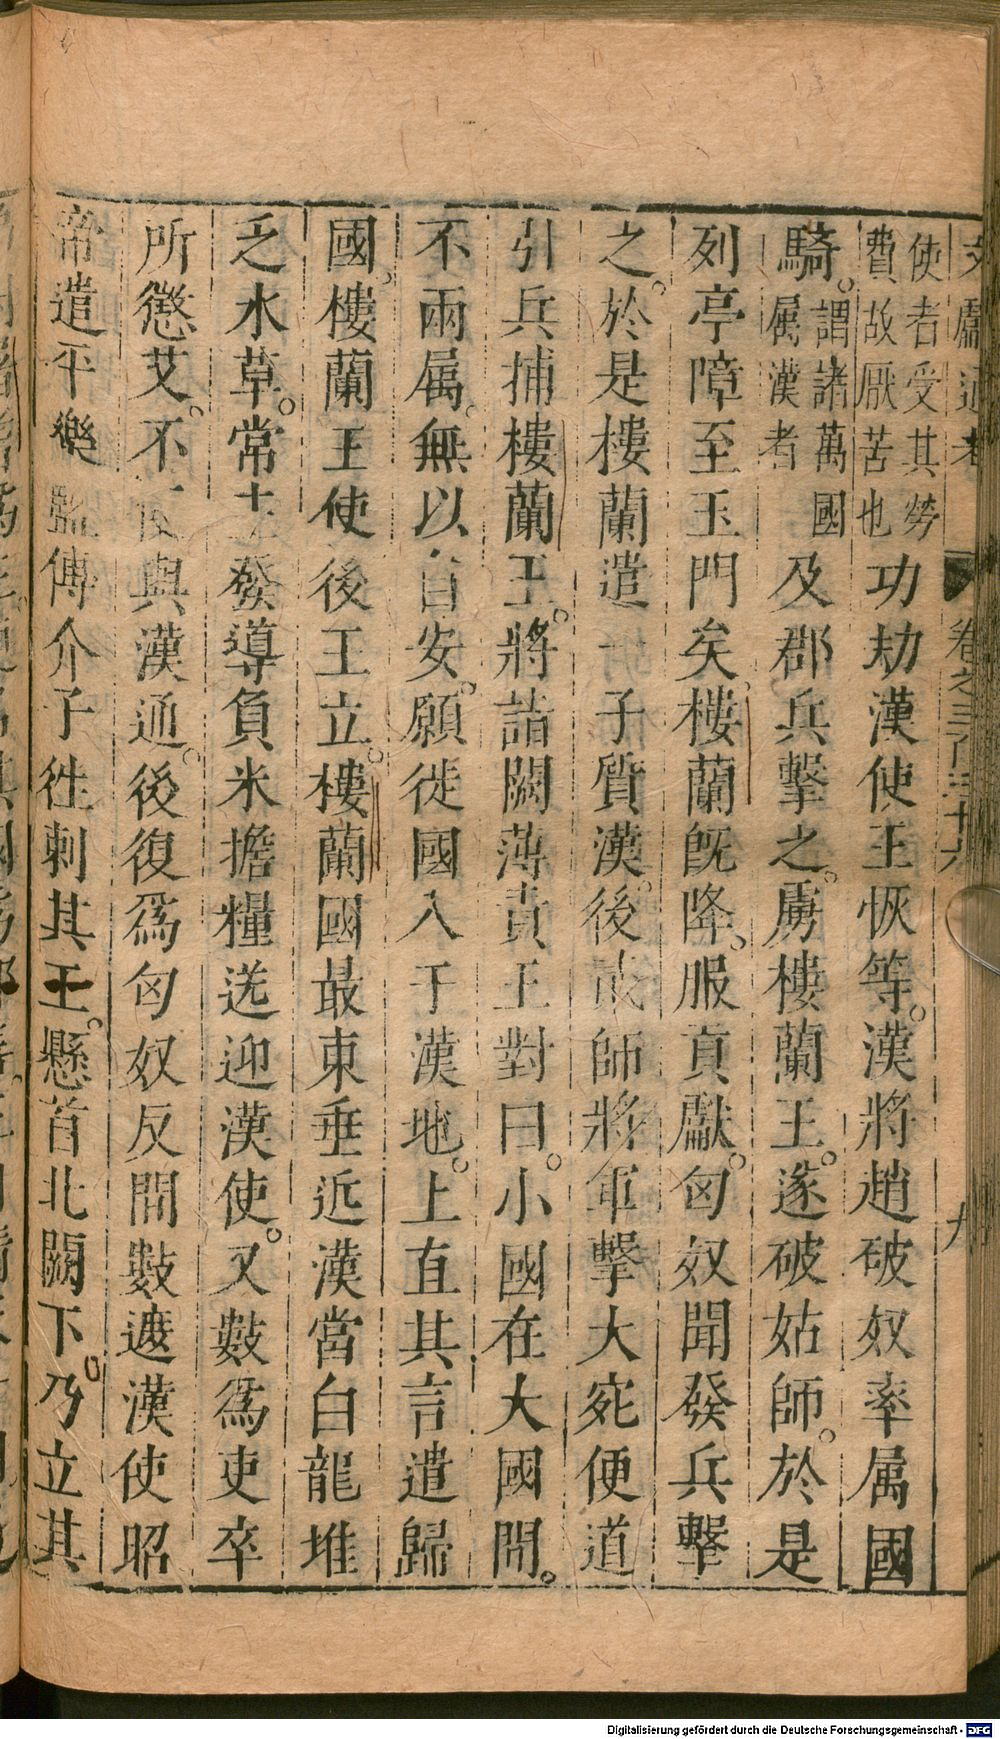 文獻通考 卷之三百三十六 九
使者受其勞
費故厭苦也
功劫漢使王恢等。漢將趙破奴率属國
騎。
謂諸萬國
属漢者
及郡兵擊之。虜樓蘭王。遂破姑師。於是
列亭障至玉門矣。樓蘭既降。服貢獻。匈奴聞發兵擊
之。於是樓蘭遣一子質漢。後貳師將軍擊大宛便道
引兵捕樓蘭王。將詣闕薄責王對曰。小國在大國間。
不兩属。無以自安。願徙國入于漢地。上直其言遣歸
國。樓蘭王使後王立。樓蘭國最東垂近漢當白龍堆
乏水草。常主發導負米擔糧送迎漢使。又數爲吏卒
所懲艾。不便與漢通。後復爲匈奴反間數遮漢使昭
帝遣平樂監傅介子徃刺其王。懸首北闕下。乃立其
Digitalisierung gefördert durch die Deutsche Forschungsgemeinschaft - DFG